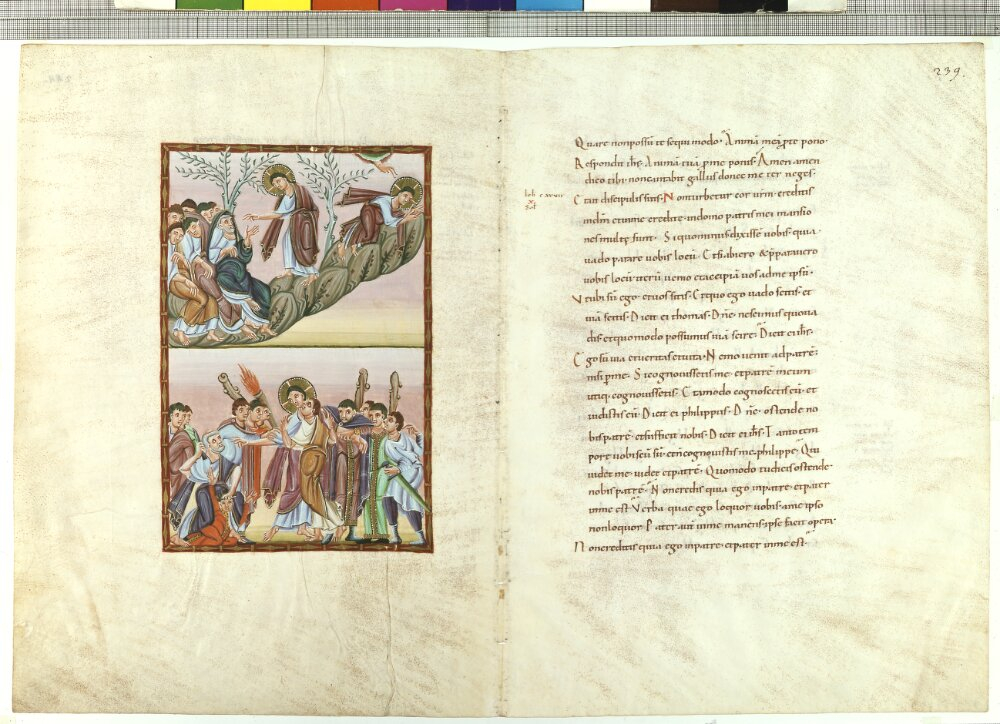 239.
Quare nonpossũ te sequi modo· Animã meã pte pono·
Respondit ihs· Animã tuã p me ponis· Amen amen
dico tibi· noncantabit gallus donec me ter neges·
Et ait discipulis suis· Non turbetur cor urm̃· creditis
indm̃ et inme credite· indomo patris mei mansio
nes multę sunt· Siquominus dixissẽ uobis· quia
uado parare uobis locũ· Et si abiero & pparauero
uobis locũ· iterũ uenio et accipiã uos adme ipsũ·
Ut ubi sũ ego· et uos sitis· Et quo ego uado scitis· et
uiã scitis· Dicit ei thomas· Dñe· nescimus quoua
dis· et quomodo possumus uiã scire· Dicit ei ihs·
Ego sũ uia et ueritas et uita· Nemo uenit ad patrẽ·
nisi p me· Si cognouissetis me· et patrẽ meum
utiq; cognouissetis· Et amodo cognoscetis eũ· et
uidistis eũ· Dicit ei philippus· Dñe· ostende no
bis patrẽ· et sufficit nobis· Dicit ei ihs· Tanto tem
pore uobiscũ sũ· et ñ cognouistis me· philippe· Qui
uidet me· uidet et patrẽ· Quomodo tu dicis ostende
nobis patrẽ· Non credis quia ego inpatre· et pater
inme est· Verba quae ego loquor uobis· ame ipso
nonloquor· Pater aut̃ inme manens· ipse facit opera·
Non creditis quia ego inpatre· et pater inme est·